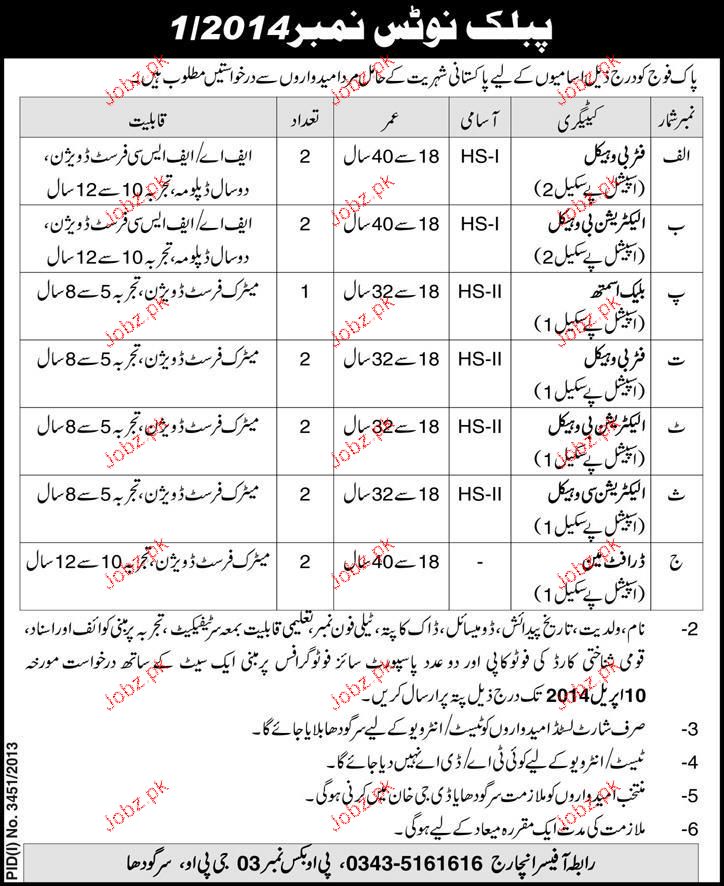 پبلک نوٹس نمبر 1/2014
پاک فوج کو درج ذیل اسامیوں کے لیے پاکستانی شہریت کے حامل مرد امیدواروں سے درخواستیں مطلوب ہیں۔
نمبر شمار کیٹیگری آسامی عمر تعداد قابلیت
الف فٹر بی وہیکل HS-I 18 سے 40 سال 2 ایف اے/ایف ایس سی فرسٹ ڈویژن،
(اسپیشل پے سکیل 2) دو سال ڈپلومہ، تجربہ 10 سے 12 سال
ب الیکٹریشن بی وہیکل HS-I 18 سے 40 سال 2 ایف اے/ایف ایس سی فرسٹ ڈویژن،
(اسپیشل پے سکیل 2) دو سال ڈپلومہ، تجربہ 10 سے 12 سال
پ بلیک اسمتھ HS-II 18 سے 32 سال 1 میٹرک فرسٹ ڈویژن، تجربہ 5 سے 8 سال
(اسپیشل پے سکیل 1)
ت فٹر بی وہیکل HS-II 18 سے 32 سال 2 میٹرک فرسٹ ڈویژن، تجربہ 5 سے 8 سال
(اسپیشل پے سکیل 1)
ٹ الیکٹریشن بی وہیکل HS-II 18 سے 32 سال 2 میٹرک فرسٹ ڈویژن، تجربہ 5 سے 8 سال
(اسپیشل پے سکیل 1)
ث الیکٹریشن سی وہیکل HS-II 18 سے 32 سال 2 میٹرک فرسٹ ڈویژن، تجربہ 5 سے 8 سال
(اسپیشل پے سکیل 1)
ج ڈرافٹ مین - 18 سے 40 سال 2 میٹرک فرسٹ ڈویژن، تجربہ 10 سے 12 سال
(اسپیشل پے سکیل 1)
2- نام، ولدیت، تاریخ پیدائش، ڈومیسائل، ڈاک کا پتہ، ٹیلی فون نمبر، تعلیمی قابلیت بمعہ سرٹیفکیٹ، تجربہ پر مبنی کوائف اور اسناد،
قومی شناختی کارڈ کی فوٹو کاپی اور دو عدد پاسپورٹ سائز فوٹو گرافس پر مبنی ایک سیٹ کے ساتھ درخواست مورخہ
10 اپریل 2014 تک درج ذیل پتہ پر ارسال کریں۔
3- صرف شارٹ لسٹڈ امیدواروں کو ٹیسٹ/انٹرویو کے لیے سرگودھا بلایا جائے گا۔
4- ٹیسٹ/انٹرویو کے لیے کوئی ٹی اے/ڈی اے نہیں دیا جائے گا۔
5- منتخب امیدواروں کو ملازمت سرگودھا یا ڈی جی خان میں کرنی ہوگی۔
6- ملازمت کی مدت ایک مقررہ میعاد کے لیے ہوگی۔
رابطہ آفیسر انچارج 0343-5161616، پی او بکس نمبر 03 جی پی او، سرگودھا
PID(I) No. 3451/2013
Jobz.pk